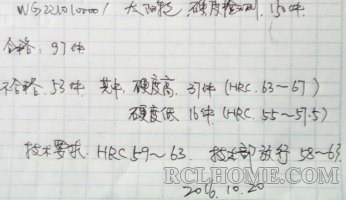 WG221010001 太阳轮,硬度检测,150件
合格,97件
不合格,53件 其中,硬度高,37件(HRC.63～67)
硬度低 16件(HRC.55～57.5)
技术要求,HRC59～63. 技术部放行 58～63
2016.10.20
RCLHOME.COM